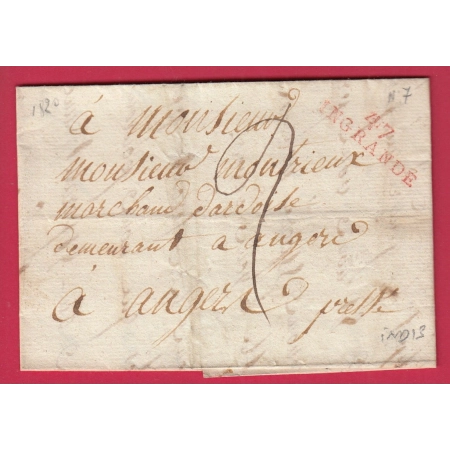 150
N°7
47
INGRANDE
2
á Monsieur
monsieur montrieux
marchand dardoise
demeurant a angers
á angers presse
iND13